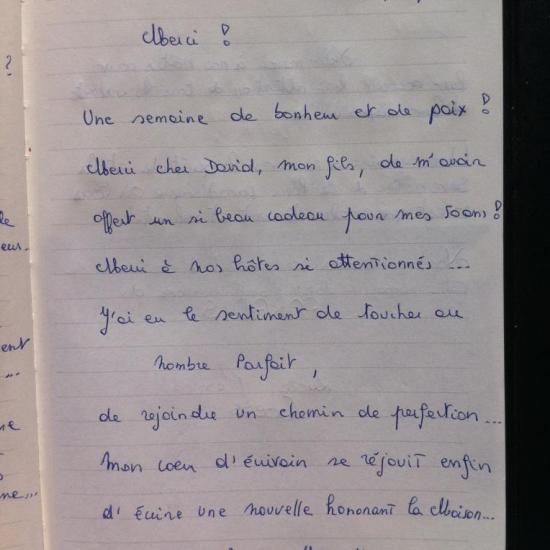 Merci !
?
Une semaine de bonheur et de paix !
Merci cher David, mon fils, de m'avoir
offert un si beau cadeau pour mes 50ans !
Merci à nos hôtes si attentionnés ...
J'ai eu le sentiment de toucher au
nombre Parfait,
de rejoindre un chemin de perfection ...
Mon coeur d'écrivain se réjouit enfin
d'écrire une nouvelle honorant la Maison...